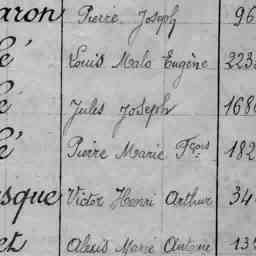 aron Pierre Joseph 96
é Louis Malo Eugène 223
é Jules Joseph 168
é Pierre Marie Fçois 182
sque Victor Henri Arthur 34
et Alexis Marie Antoine 13